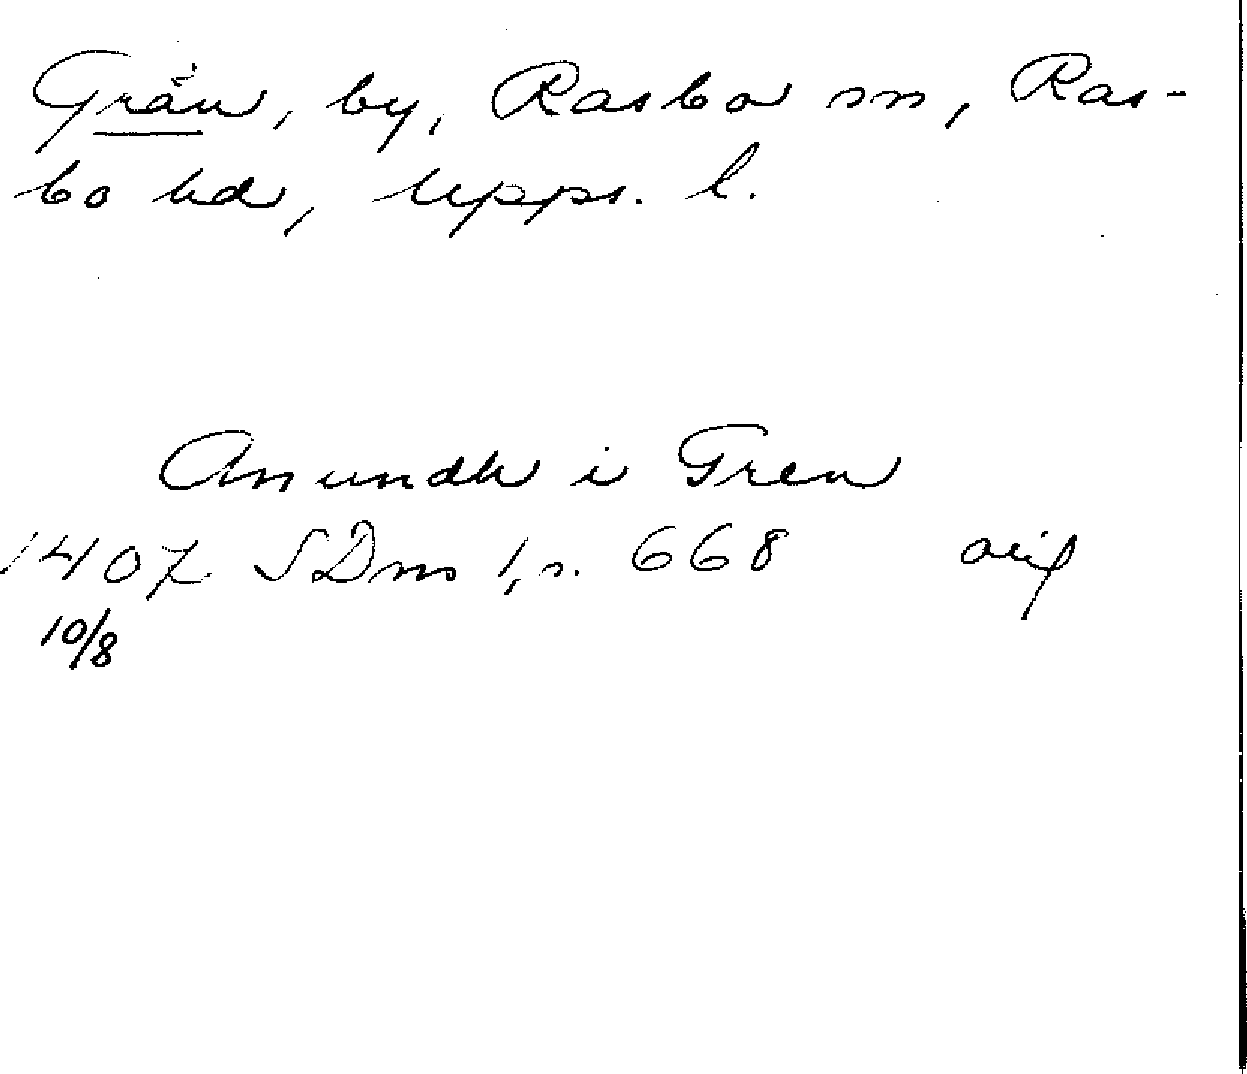 Grän, by, Rasbo sn, Ras-
bo hd, Upps. l.
Anundh i Gren
1407 SDns 1, s. 668
10/8